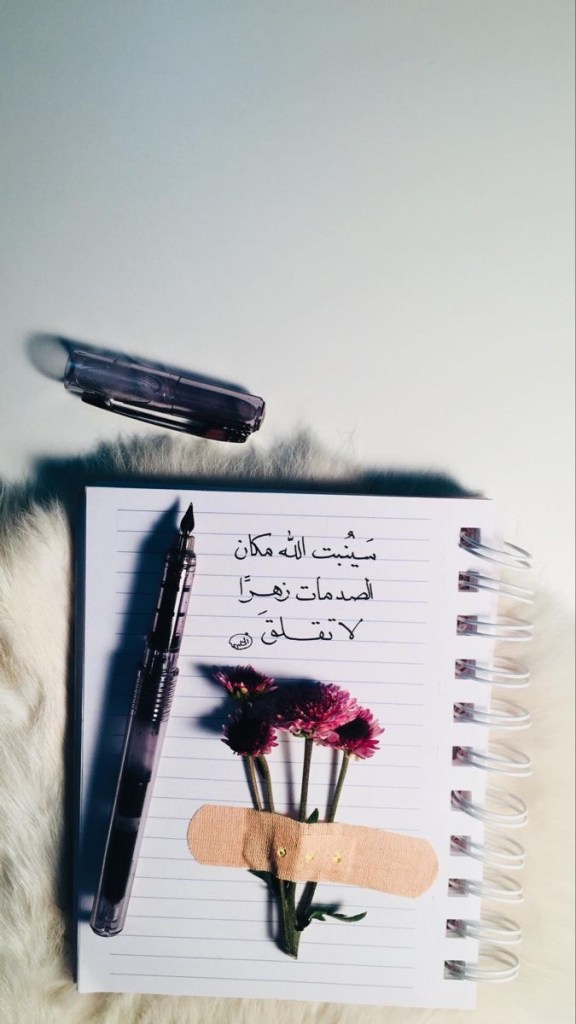 سَيُنبت الله مكان
الصدمات زهرًا
لا تقلقَ